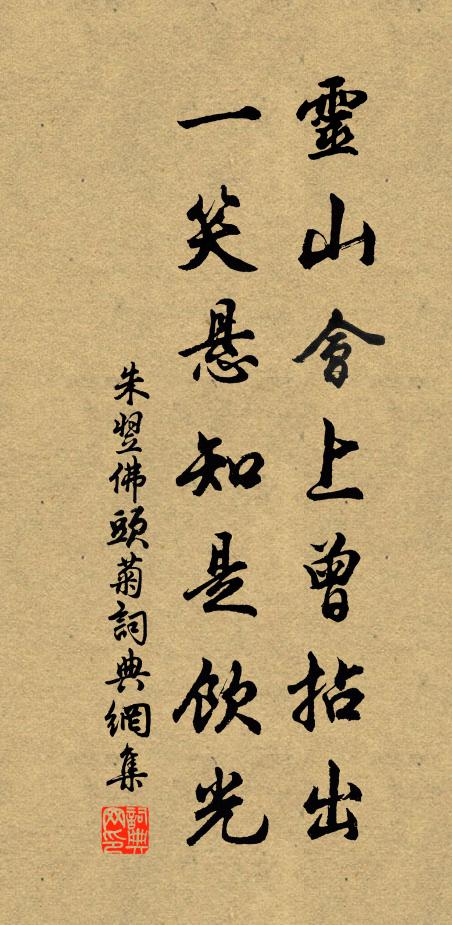 靈山會上曾拈出
一笑悬知是飲光
朱翌佛頭菊詞典網集
詞典网印